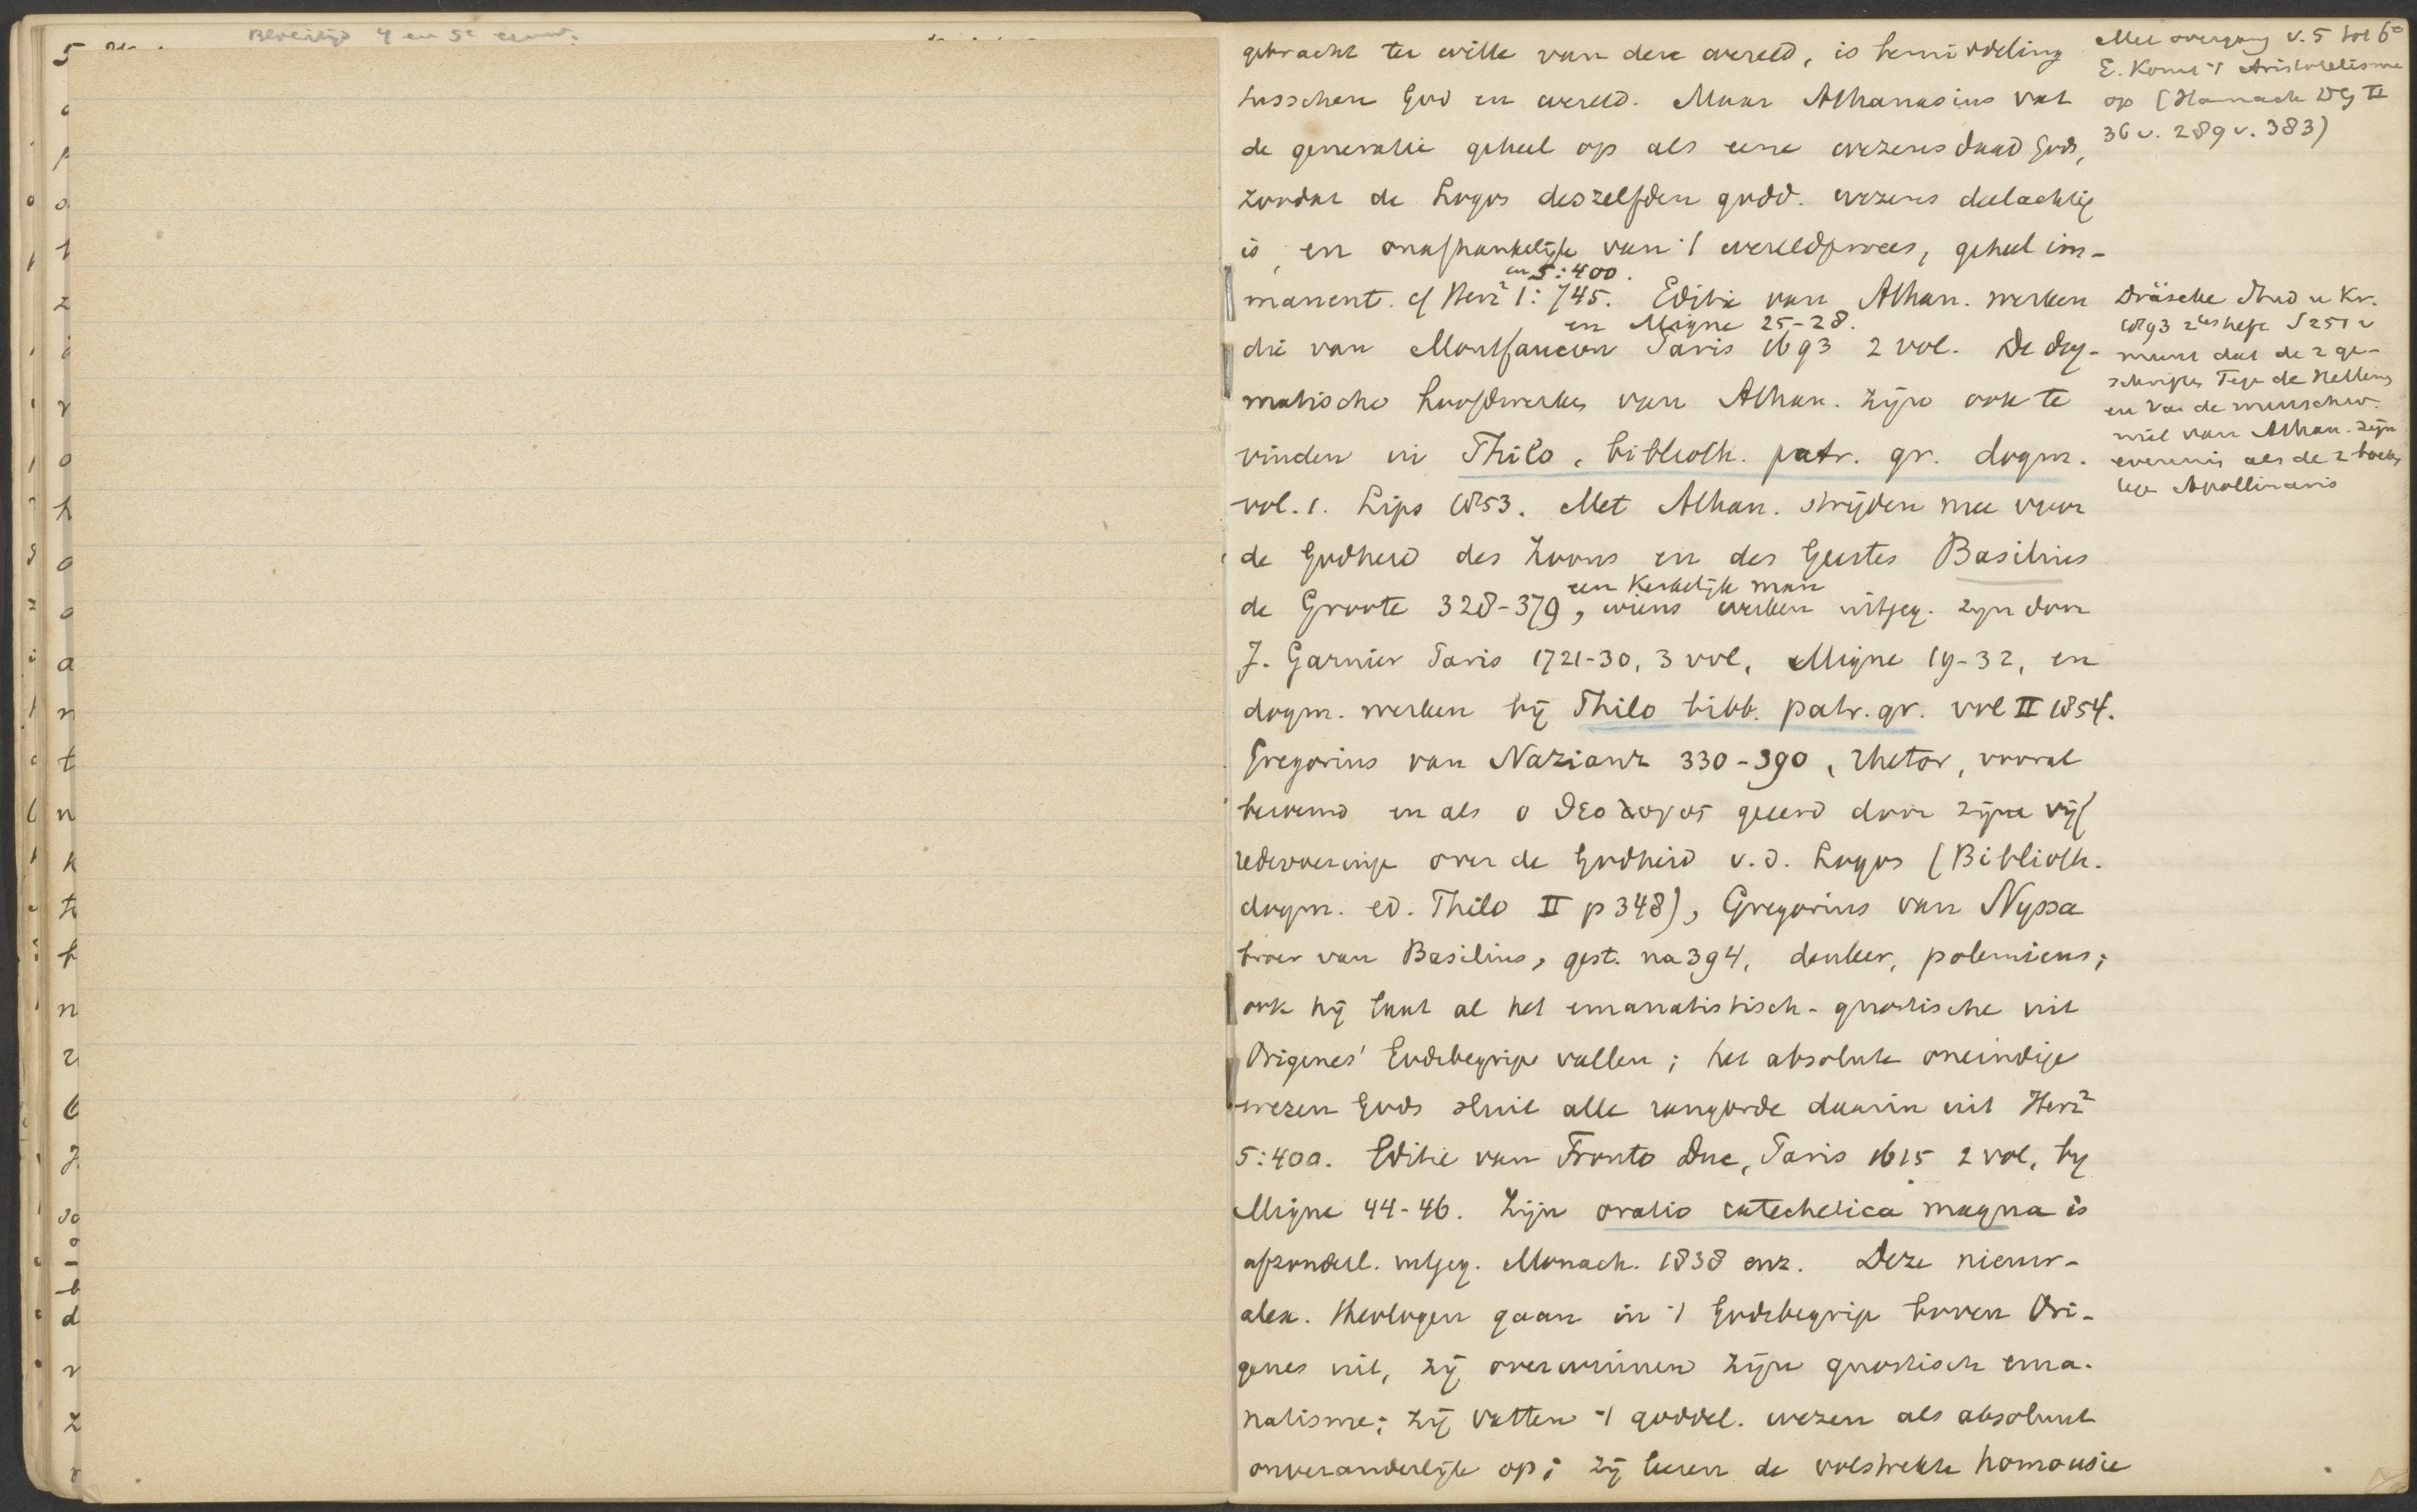 Bloeitijd 4 en 5e eeuw.
gebracht ter wille van deze wereld, is bemiddeling
tusschen God en wereld. Maar Athanasius vat
de generatie geheel op als eene wezensdaad Gods,
zoodat de Logos deszelfden godd. wezens deelachtig
is, en onafhankelijk van 't wereldproces, geheel im-
en 5:400.
manent. cf Herz² 1:745. Editie van Athan. werken
en Migne 25-28.
die van Montfaucon Paris 1693 2 vol. De dog-
matische hoofdwerken van Athan. zijn ook te
vinden in Thilo, biblioth. patr. gr. dogm.
vol. 1. Lips 1853. Met Athan. strijden mee voor
de Godheid des Zoons en des Geestes Basilius
een Kerkelijk man
de Groote 328-379, wiens werken uitgeg. zijn door
J. Garnier Paris 1721-30, 3 vol, Migne 19-32, en
dogm. werken bij Thilo bibl. patr. gr. vol II 1854.
Gregorius van Nazianz 330-390, rhetor, vooral
beroemd en als ο θεολογος geeerd door zijne vijf
redevoeringe over de Godheid v.d. Logos (Biblioth.
dogm. ed. Thilo II p 348), Gregorius van Nyssa
broer van Basilius, gest. na 394, denker, polemicus;
ook hij laat al het emanatistisch-gnostische uit
Origenes' Godsbegrip vallen; het absolute oneindige
wezen Gods sluit alle rangorde daarin uit Herz²
5:400. Editie van Fronto Duc, Paris 1615 2 vol, bij
Migne 44-46. Zijn oratio catechetica magna is
afzonderl. uitgeg. Monach. 1838 enz. Deze nieuw-
alex. theologen gaan in 't Godsbegrip boven Ori-
genes uit, zij overwinnen zijn gnostisch ema-
natisme; zij vatten 't goddel. wezen als absoluut
onveranderlijk op; zij leeren de volstrekte homousie
Met overgang v. 5 tot 6e
E. komt 't Aristotelisme
op (Harnack DG II
36 v. 289 v. 383)
Dräseke Stud u Kr.
1893 2tes heft S 251 v
meent dat de 2 ge-
schriften Tege de Hellens
en Van de menschw.
niet van Athan. zijn
evenmin als de 2 boeken
tege Apollinaris